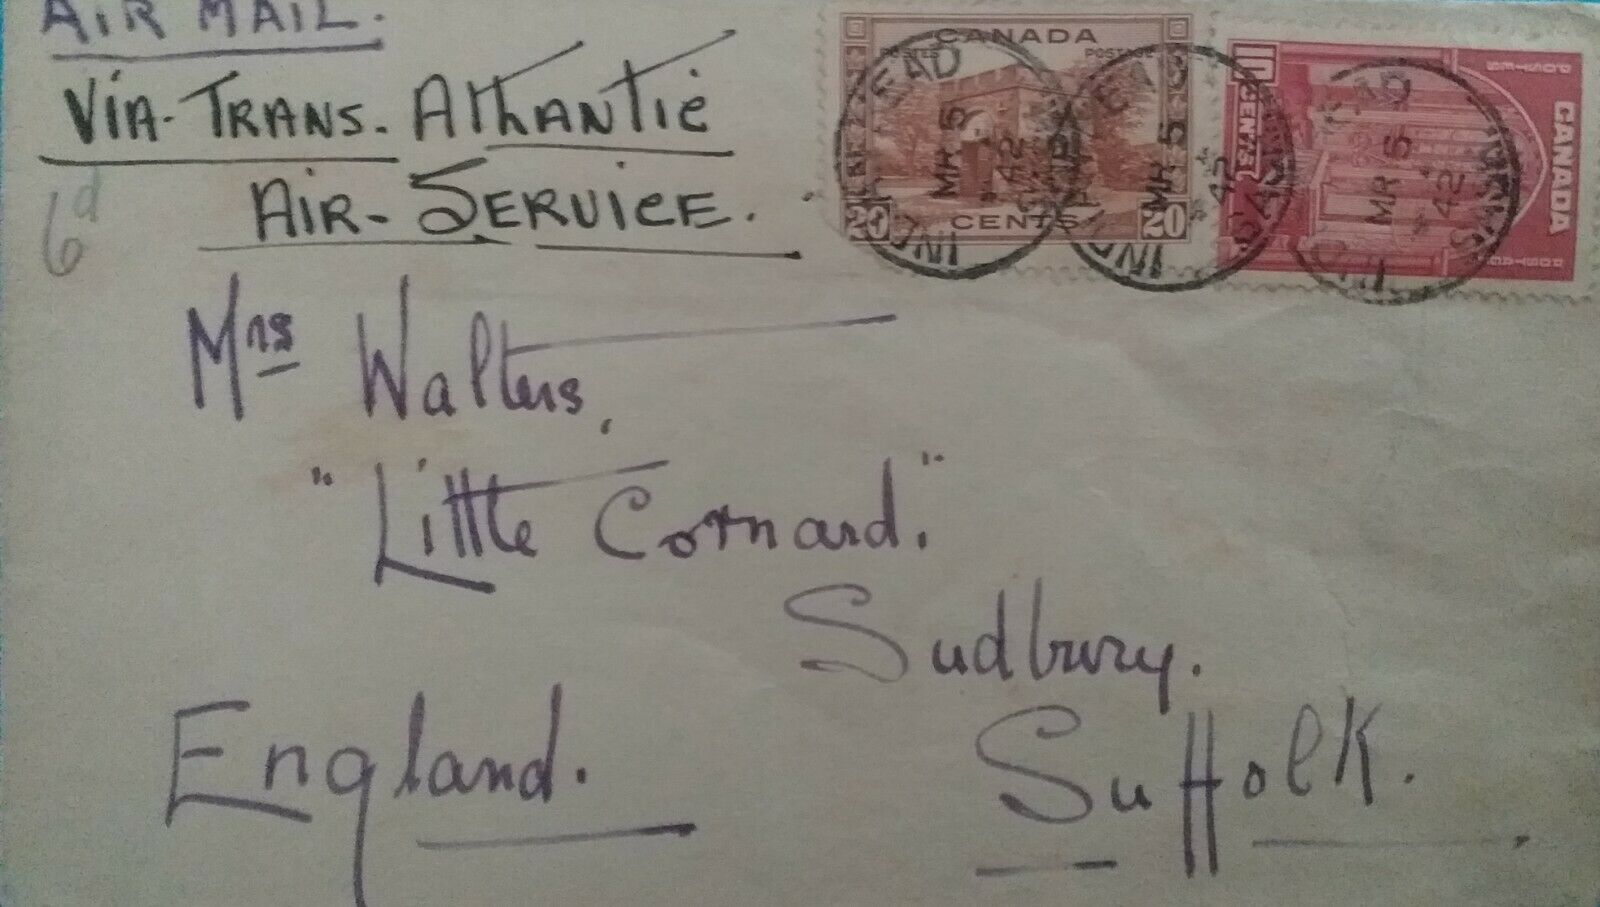 AIR MAIL.
VIA-TRANS. AtLANTIC
AIR-SERVICE.
6d
CANADA
POSTES POSTAGE
20 CENTS 20
10 CENTS
CANADA
POSTES
POSTAGE
INDIAN HEAD
MR 5
42
INDIAN HEAD
MR 5
42
INDIAN HEAD
MR 5
42
Mrs Walters,
"Little Cornard."
Sudbury.
Suffolk.
England.